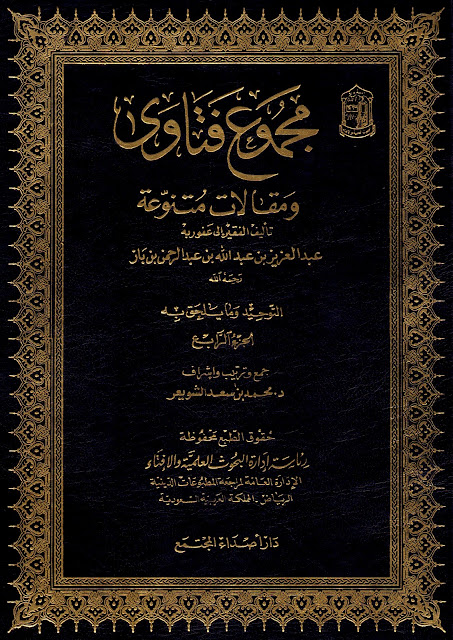 مجموع فتاوى
ومقالات متنوعة
تأليف الفقير إلى عفو ربه
عبد العزيز بن عبد الله بن عبد الرحمن بن باز
رحمه الله
التوحيد وما يلحق به
الجزء الرابع
جمع وترتيب وإشراف
د. محمد بن سعد الشويعر
حقوق الطبع محفوظة
رئاسة إدارة البحوث العلمية والإفتاء
الإدارة العامة لمراجعة المطبوعات الدينية
الرياض - المملكة العربية السعودية
دار أصداء المجتمع